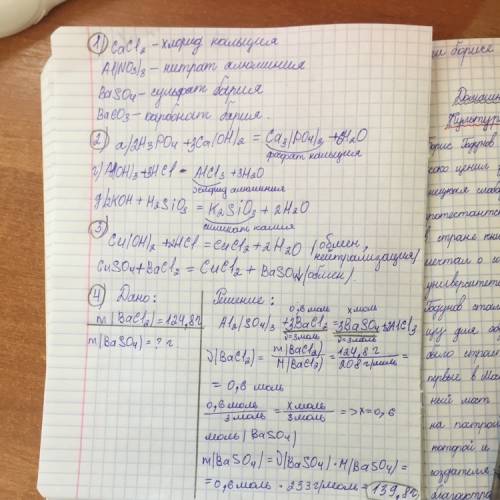 1) CaCl2 - хлорид кальция
Al(NO3)3 - нитрат алюминия
BaSO4 - сульфат бария
BaCO3 - карбонат бария.
2) а) 2H3PO4 + 3Ca(OH)2 = Ca3(PO4)2 + 6H2O
фосфат кальция
г) Al(OH)3 + 3HCl = AlCl3 + 3H2O
хлорид алюминия
д) 2KOH + H2SiO3 = K2SiO3 + 2H2O
силикат калия
3) Cu(OH)2 + 2HCl = CuCl2 + 2H2O (обмен,
нейтрализация)
CuSO4 + BaCl2 = CuCl2 + BaSO4↓ (обмен).
4) Дано:
m(BaCl2) = 124,8 г
m(BaSO4) = ? г
Решение:
0,6 моль x моль
Al2(SO4)3 + 3BaCl2 = 3BaSO4 + 2AlCl3
ν=3моль ν=3моль
ν(BaCl2) = m(BaCl2)/M(BaCl2) = 124,8 г/208 г/моль =
= 0,6 моль
0,6 моль/3 моль = x моль/3 моль => x = 0,6
моль (BaSO4)
m(BaSO4) = ν(BaSO4) · M(BaSO4) =
= 0,6 моль · 233 г/моль = 139,8 г.
борисе
Домашн
Культур
Борис Годунов
ценил
в стране
мечтал о
университет
Годунов
для
было
первые в
на
и